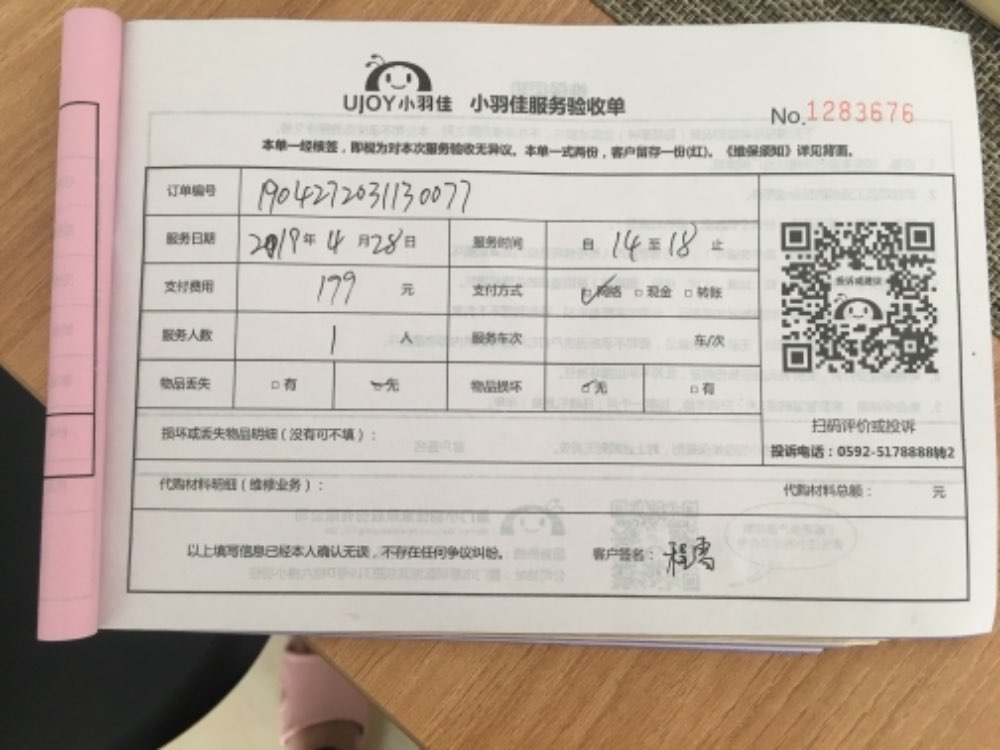 UJOY小羽佳 小羽佳服务验收单
No.1283676
本单一经核签，即视为对本次服务验收无异议。本单一式两份，客户留存一份(红)。《维保须知》详见背面。
订单编号 1904272031130077
服务日期 2019年4月28日 服务时间 自14至18止
支付费用 199 元 支付方式 ☑网络 □现金 □转账
服务人数 1 人 服务车次 车/次
物品丢失 □有 ☑无 物品损坏 ☑无 □有
投诉或建议
扫码评价或投诉
投诉电话：0592-5178888转2
损坏或丢失物品明细（没有可不填）：
代购材料明细（维修业务）： 代购材料总额： 元
以上填写信息已经本人确认无误，不存在任何争议纠纷。 客户签名：程雪